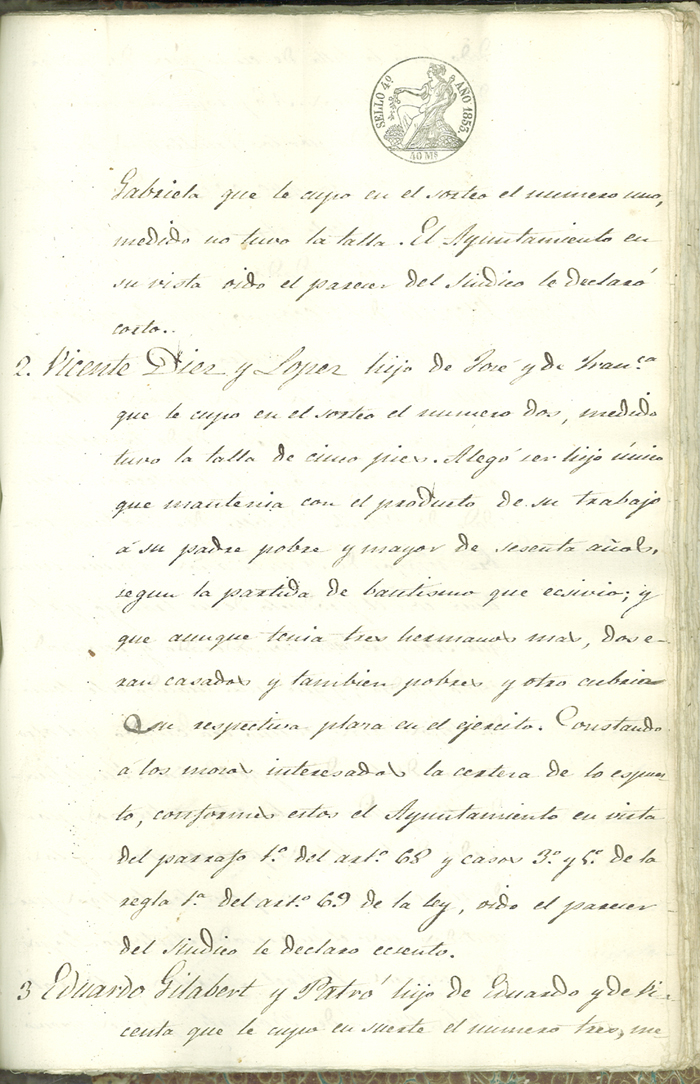 SELLO 4º AÑO 1855.
40 Ms
Gabriela que le cupo en el sorteo el numero uno,
medido no tuvo la talla. El Ayuntamiento en
su vista oido el parecer del Sindico le declaró
corto..
2. Vicente Diez y Lopez hijo de José y de Franca
que le cupo en el sorteo el numero dos, medido
tuvo la talla de cinco pies. Alegó ser hijo único
que mantenia con el producto de su trabajo
á su padre pobre y mayor de sesenta años,
segun la partida de bautismo que ecsivio; y
que aunque tenia tres hermanos mas, dos e-
ran casados y tambien pobres y otro cubria
su respectiva plaza en el ejercito. Constando
á los mozos interesados la certeza de lo espues-
to, conformes estos el Ayuntamiento en vista
del parrafo 1º del artº 68 y casos 3º y 5º de la
regla 1ª del artº 69 de la ley, oido el parecer
del Sindico le declaro ecsento.
3 Eduardo Gilabert y Patró hijo de Eduardo y de Vi-
centa que le cupo en suerte el numero tres, me-